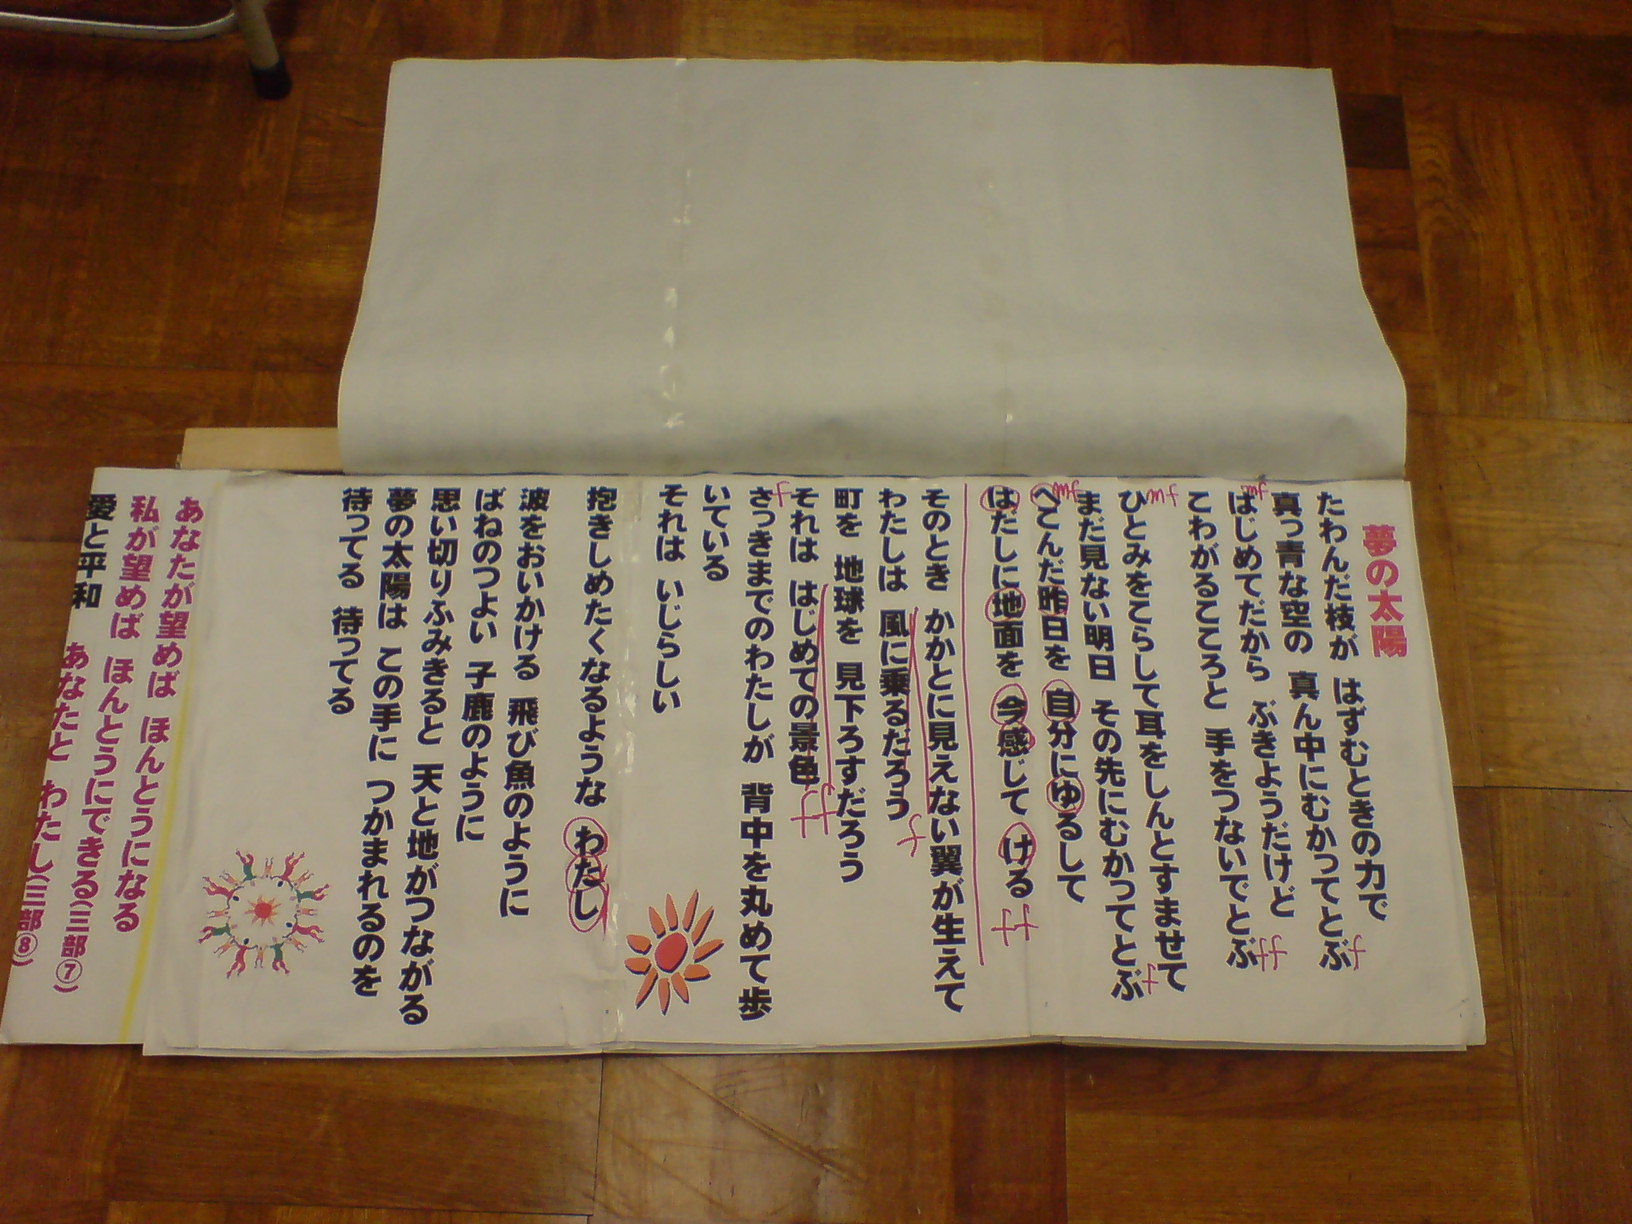 夢の太陽
たわんだ枝が はずむときの力で
真っ青な空の 真ん中にむかってとぶ f
mf はじめてだから ぶきようだけど
こわがるこころと 手をつないでとぶ ff
mf ひとみをこらして耳をしんとすませて
まだ見ない明日 その先にむかってとぶ f
mf へこんだ昨日を 自分にゆるして
はだしに地面を 今感じて ける ff
そのとき かかとに見えない翼が生えて
わたしは 風に乗るだろう f
町を 地球を 見下ろすだろう
それは はじめての景色 ff
f さっきまでのわたしが 背中を丸めて歩
いている
それは いじらしい
抱きしめたくなるような わたし
波をおいかける 飛び魚のように
ばねのつよい 子鹿のように
思い切りふみきると 天と地がつながる
夢の太陽は この手に つかまれるのを
待ってる 待ってる
あなたが望めば ほんとうになる
私が望めば ほんとうにできる(三部⑦)
愛と平和 あなたと わたし(三部⑧)